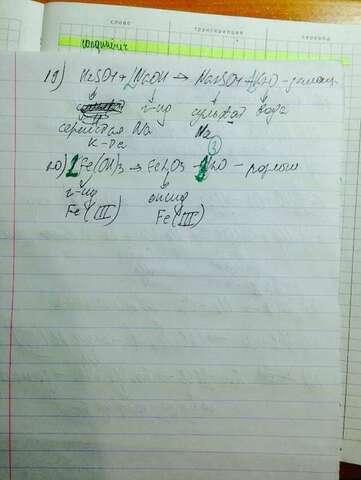 слово транскрипция перевод
19) H₂SO₄ + 2NaOH → Na₂SO₄ + H₂O -
г-ид сульфат вода
серн к-та Na Na
20) 2Fe(OH)₃ → Fe₂O₃ + H₂O -
г-ид оксид
Fe(III) Fe(III)